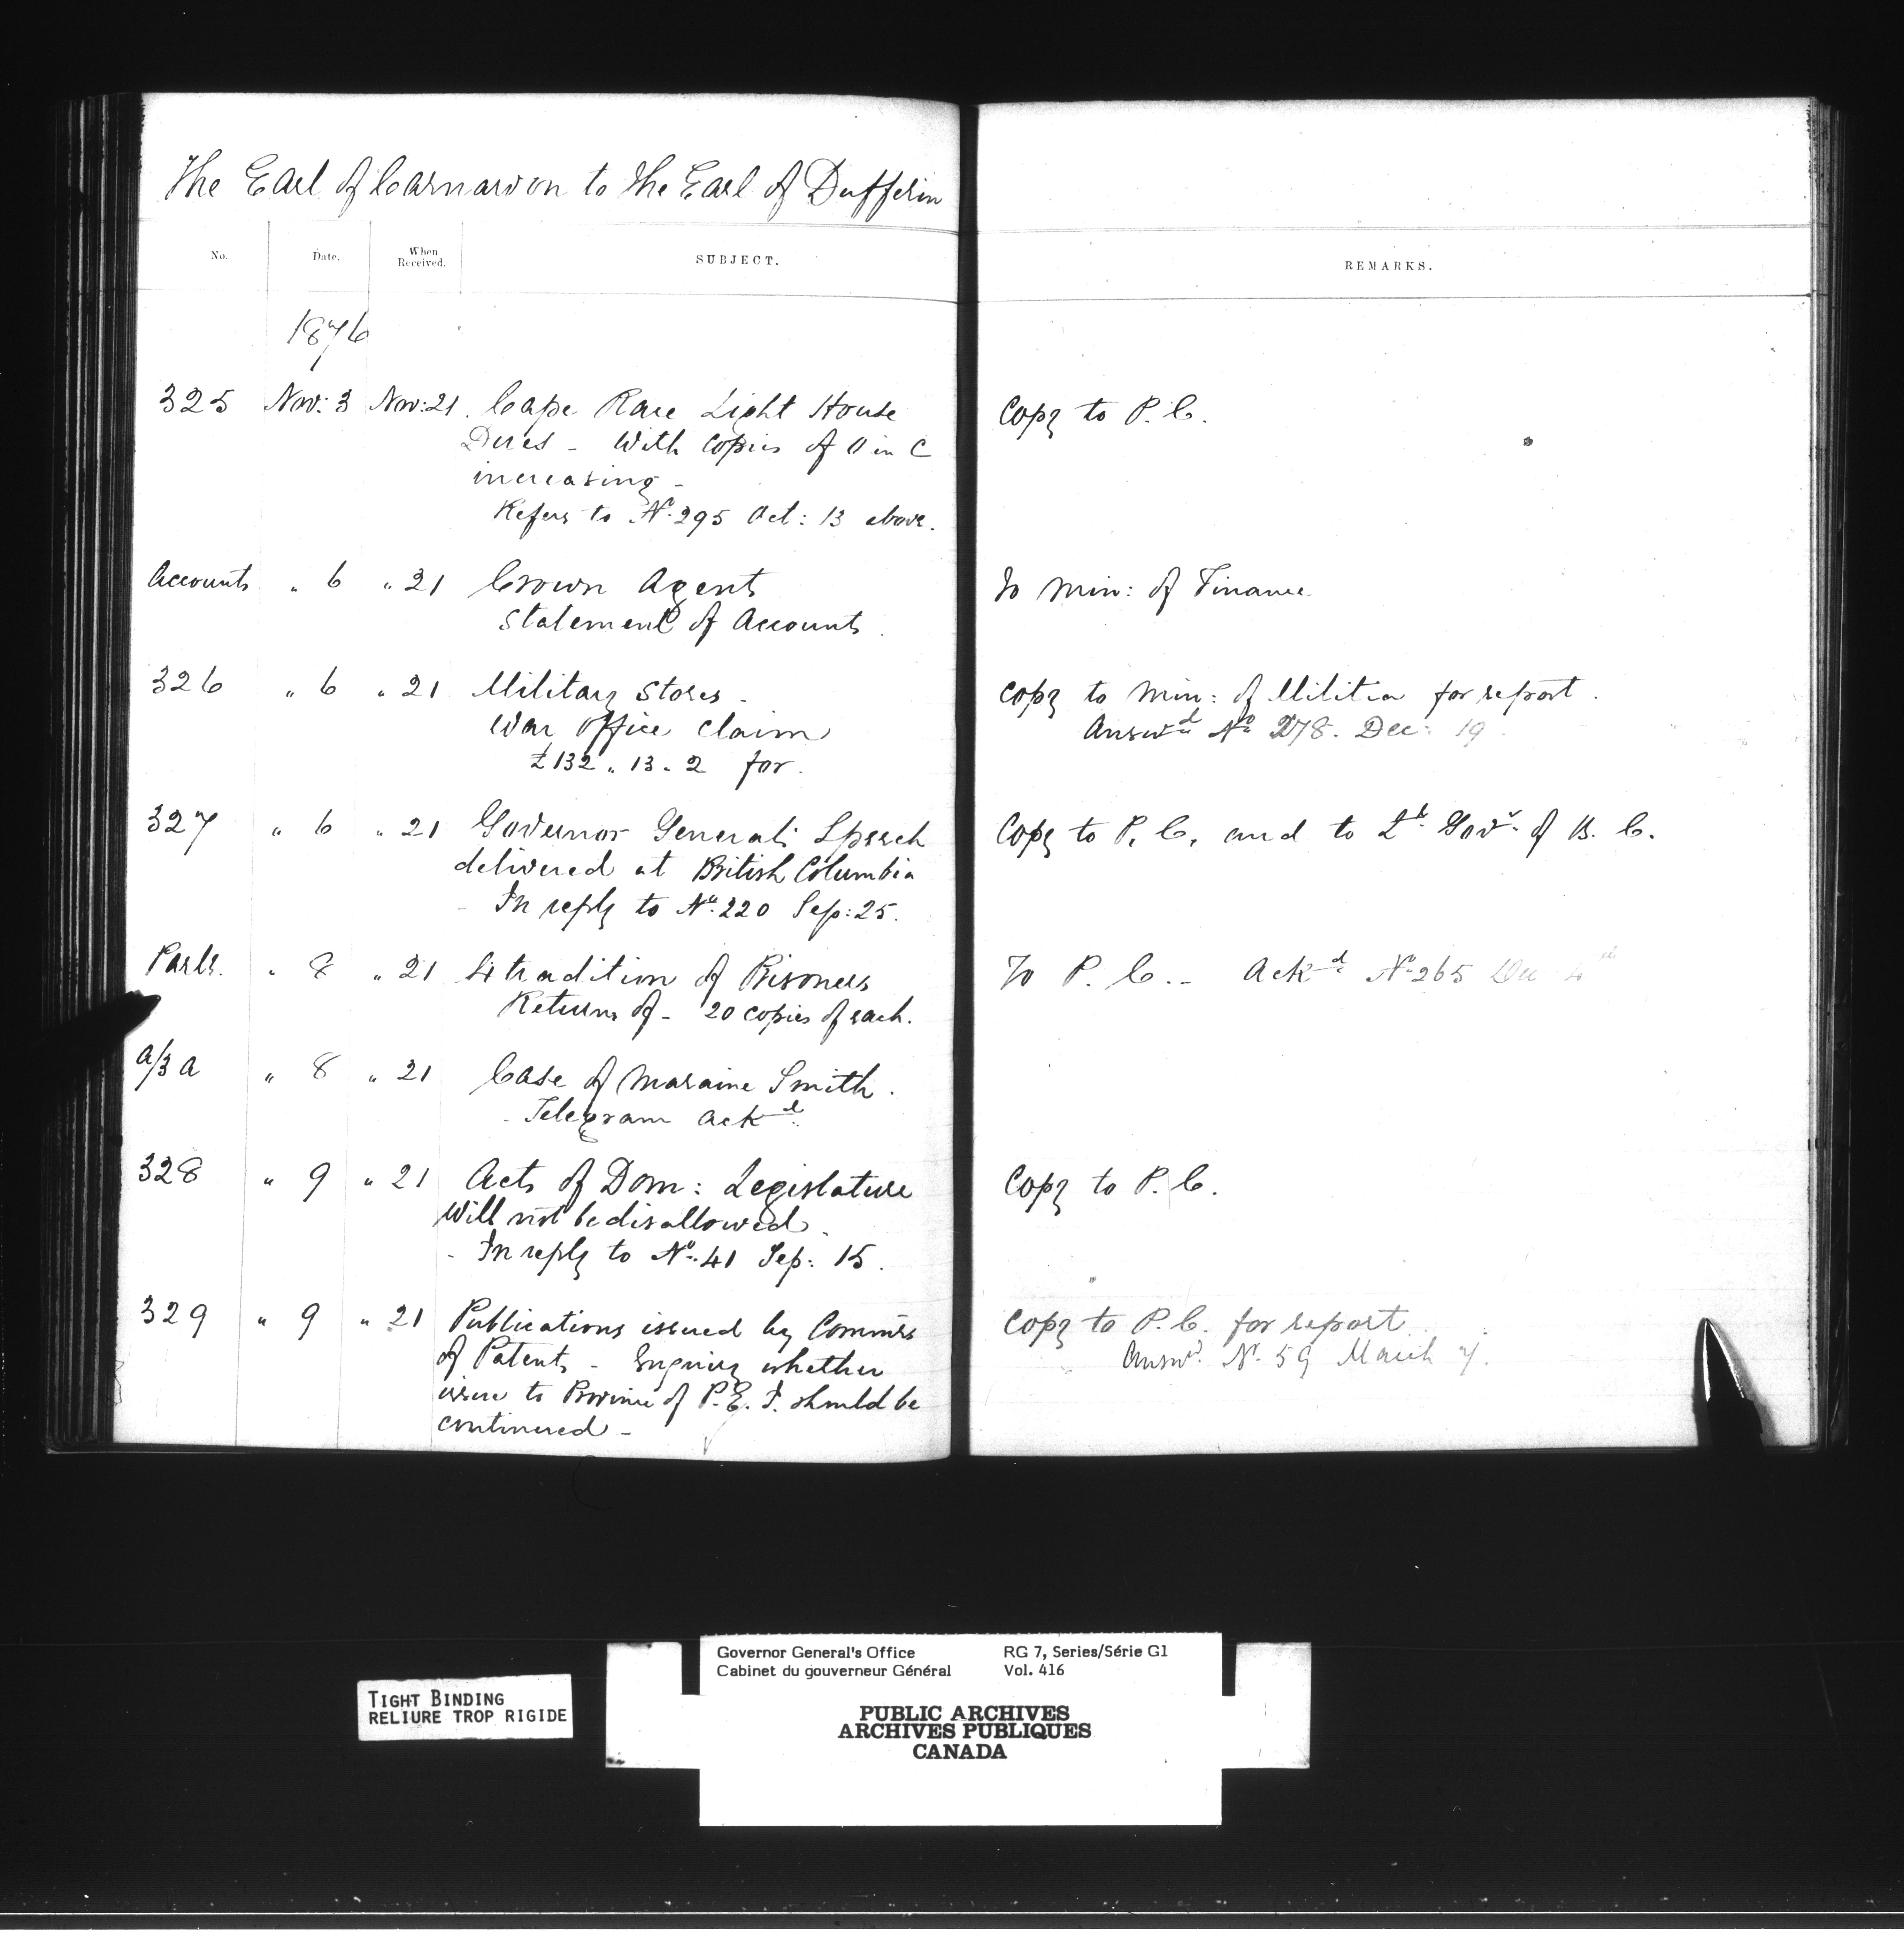 The Earl of Carnarvon to the Earl of Dufferin
No. Date. When Received. SUBJECT. REMARKS.
1876
325 Nov: 3 Nov: 21 Cape Race Light House Copy to P. C.
Dues - With copies of O in C
increasing -
Refers to No. 295 Oct: 13 above.
Accounts " 6 " 21 Crown Agent To Min: of Finance
Statement of Accounts.
326 " 6 " 21 Military Stores - Copy to Min: of Militia for report.
War Office Claim Answd. No. 278. Dec: 19.
£132 " 13 " 2 for.
327 " 6 " 21 Governor General's Speech Copy to P. C. and to Lt. Govr. of B. C.
delivered at British Columbia
- In reply to No. 220 Sep: 25.
Parly. " 8 " 21 Extradition of Prisoners To P. C. - Ackd. No. 265 Dec 4th
Returns of - 20 copies of each.
a/3 a " 8 " 21 Case of Maraine Smith.
- Telegram ackd.
328 " 9 " 21 Acts of Dom: Legislature Copy to P. C.
Will not be disallowed.
- In reply to No. 41 Sep: 15.
329 " 9 " 21 Publications issued by Commrs Copy to P. C. for report
of Patents - Enquiry whether Answd. No. 59 March 7.
issue to Province of P. E. I. should be
continued -
Governor General's Office RG 7, Series/Série G1
Cabinet du gouverneur Général Vol. 416
TIGHT BINDING
RELIURE TROP RIGIDE
PUBLIC ARCHIVES
ARCHIVES PUBLIQUES
CANADA